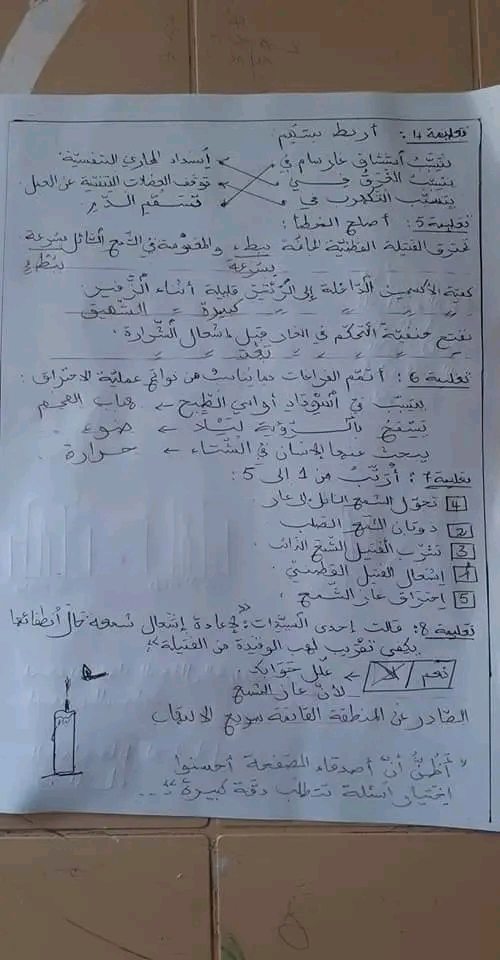 تعليمة 4: أربط بسهم
يتسبّب استنشاق غاز سام في إنسداد المجاري التنفسيّة
يتسبّب الغرق في توقّف العضلات التنفسيّة عن العمل
يتسبّب التكهرب في تسمّم الدّم
تعليمة 5: أصلح الخطأ:
تحترق الفتيلة القطنيّة المبلّلة ببطء والمغموسة في الشّمع السّائل بسرعة
بسرعة ببطء
كميّة الأكسجين الدّاخلة إلى الرّئتين قليلة أثناء الزّفير
كبيرة الشّهيق
نفتح حنفيّة التحكّم في الغاز قبل إشعال الشّرارة.
بعد
تعليمة 6: أتمّم الفراغات بما يناسب من نواتج عمليّة الاحتراق:
يتسبّب في إسوداد أواني الطّبخ ← هباب الفحم
يسمح بالرّؤية ليلا ← ضوء
يبحث عنها الإنسان في الشّتاء ← حرارة
تعليمة 7: أرتّب من 1 الى 5:
4 تحوّل الشّمع السّائل إلى غاز.
2 ذوبان الشّمع الصّلب
3 تشرّب الفتيل الشّمع الذّائب.
1 إشعال الفتيل القطنيّ.
5 إحتراق غاز الشّمع.
تعليمة 8: قالت إحدى السيّدات: "لإعادة إشعال شمعة حال انطفائها
يكفي تقريب لهب الوقيدة من الفتيلة".
نعم لا ← علّل جوابك.
لأنّ غاز الشّمع
الصّادر عن المنطقة القاتمة سريع الالتهاب
"أظنّ أنّ أصدقاء الصّفحة أحسنوا
إختيار أسئلة تتطلّب دقّة كبيرة"...